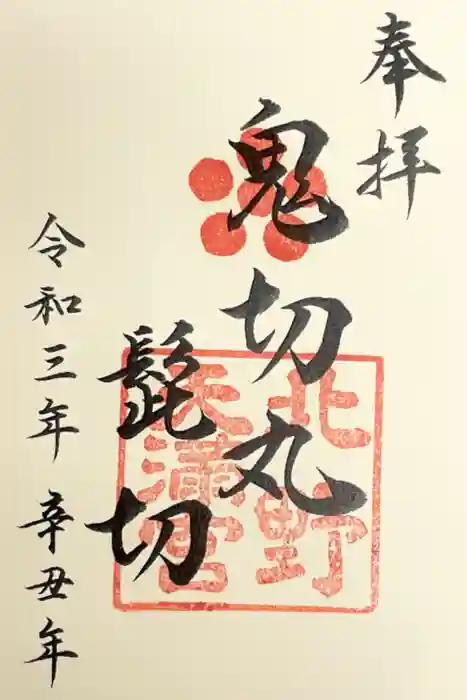 奉拝
鬼切丸
髭切
令和三年 辛丑年
北野
天満宮